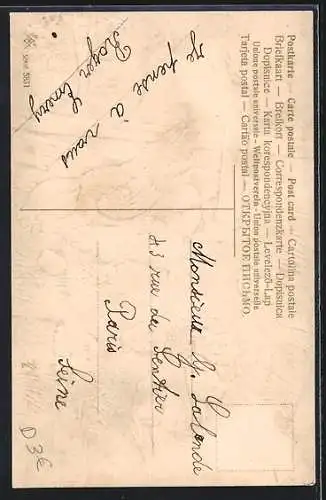 Postkarte — Carte postale — Post card — Cartolina postale
Briefkaart — Brefkort — Correspondenzkarte — Dopisnica
Dopisnice — Karta korespondencyjna — Levelező-Lap
Unione postale universale - Weltpostverein - Union postale universelle
Tarjeta postal — Cartão postal — ОТКРЫТОЕ ПИСЬМО.
Je pense à vous
Roger Emery
Monsieur G. Lalande
43 rue du Sentier
Paris
Seine
D 3€
5531